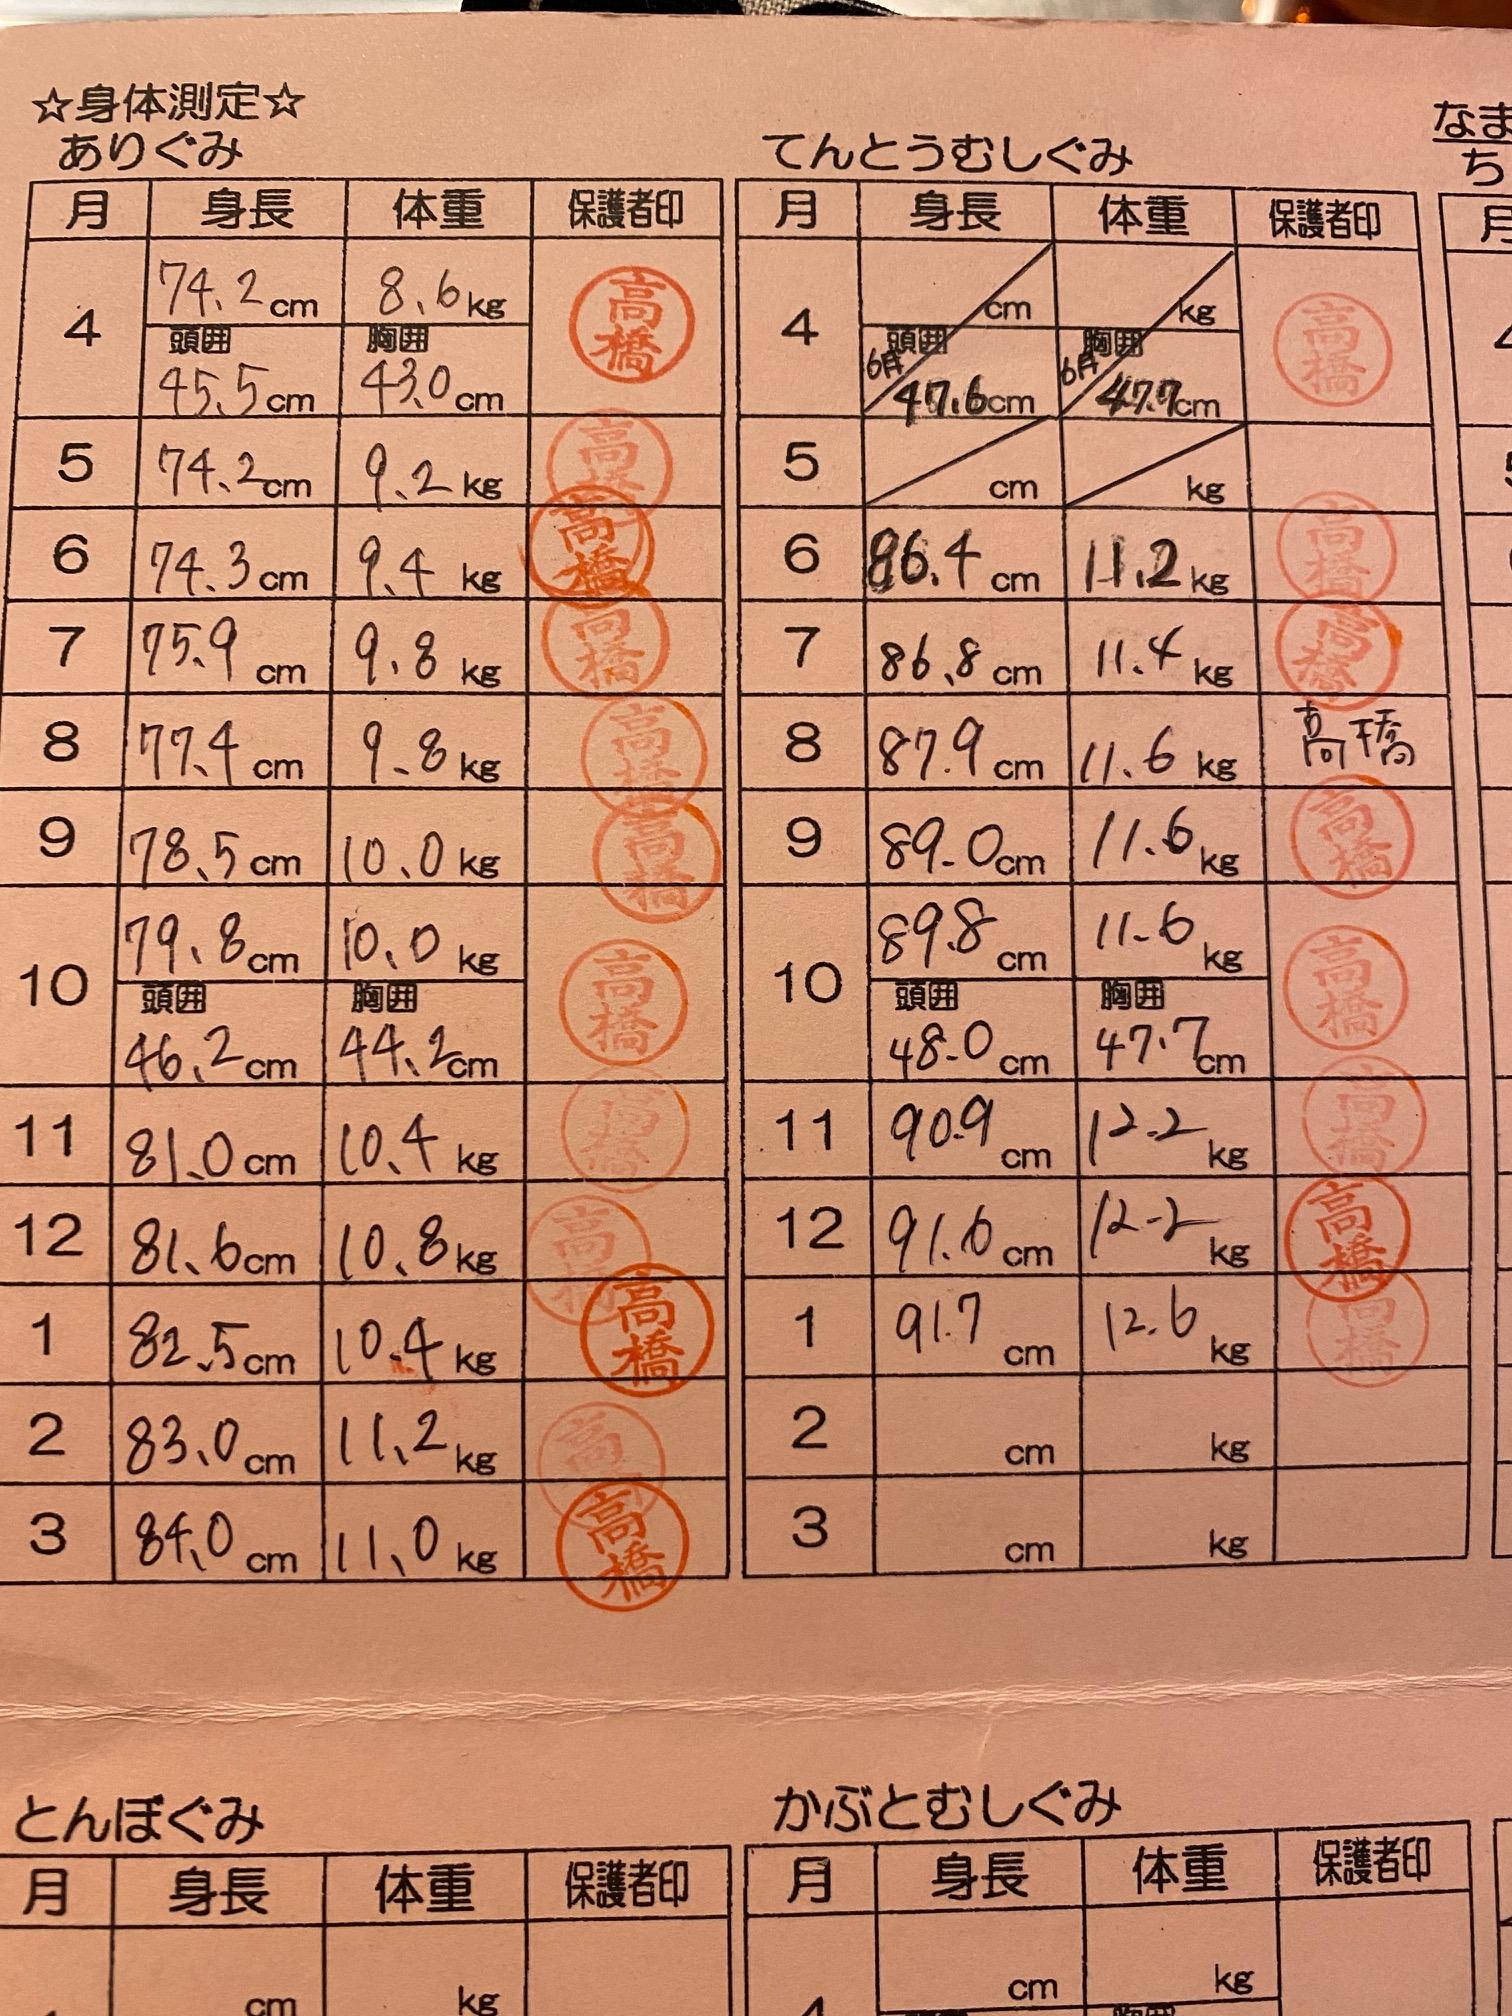 ☆身体測定☆
ありぐみ
月 身長 体重 保護者印
4 74.2cm 8.6kg 高橋
頭囲 胸囲
45.5cm 43.0cm
5 74.2cm 9.2kg 高橋
6 74.3cm 9.4kg 高橋
7 75.9cm 9.8kg 高橋
8 77.4cm 9.8kg 高橋
9 78.5cm 10.0kg 高橋
10 79.8cm 10.0kg 高橋
頭囲 胸囲
46.2cm 44.2cm
11 81.0cm 10.4kg 高橋
12 81.6cm 10.8kg 高橋
1 82.5cm 10.4kg 高橋
2 83.0cm 11.2kg 高
3 84.0cm 11.0kg 高橋
てんとうむしぐみ
月 身長 体重 保護者印
4 cm kg 高橋
頭囲 胸囲
6月 47.6cm 6月 47.7cm
5 cm kg
6 86.4cm 11.2kg 高橋
7 86.8cm 11.4kg 高橋
8 87.9cm 11.6kg 高橋
9 89.0cm 11.6kg 高橋
10 89.8cm 11.6kg 高橋
頭囲 胸囲
48.0cm 47.7cm
11 90.9cm 12.2kg 高橋
12 91.6cm 12.2kg 高橋
1 91.7cm 12.6kg 高橋
2 cm kg
3 cm kg
なま
ち
月
とんぼぐみ
月 身長 体重 保護者印
cm kg
かぶとむしぐみ
月 身長 体重 保護者印
4 cm kg